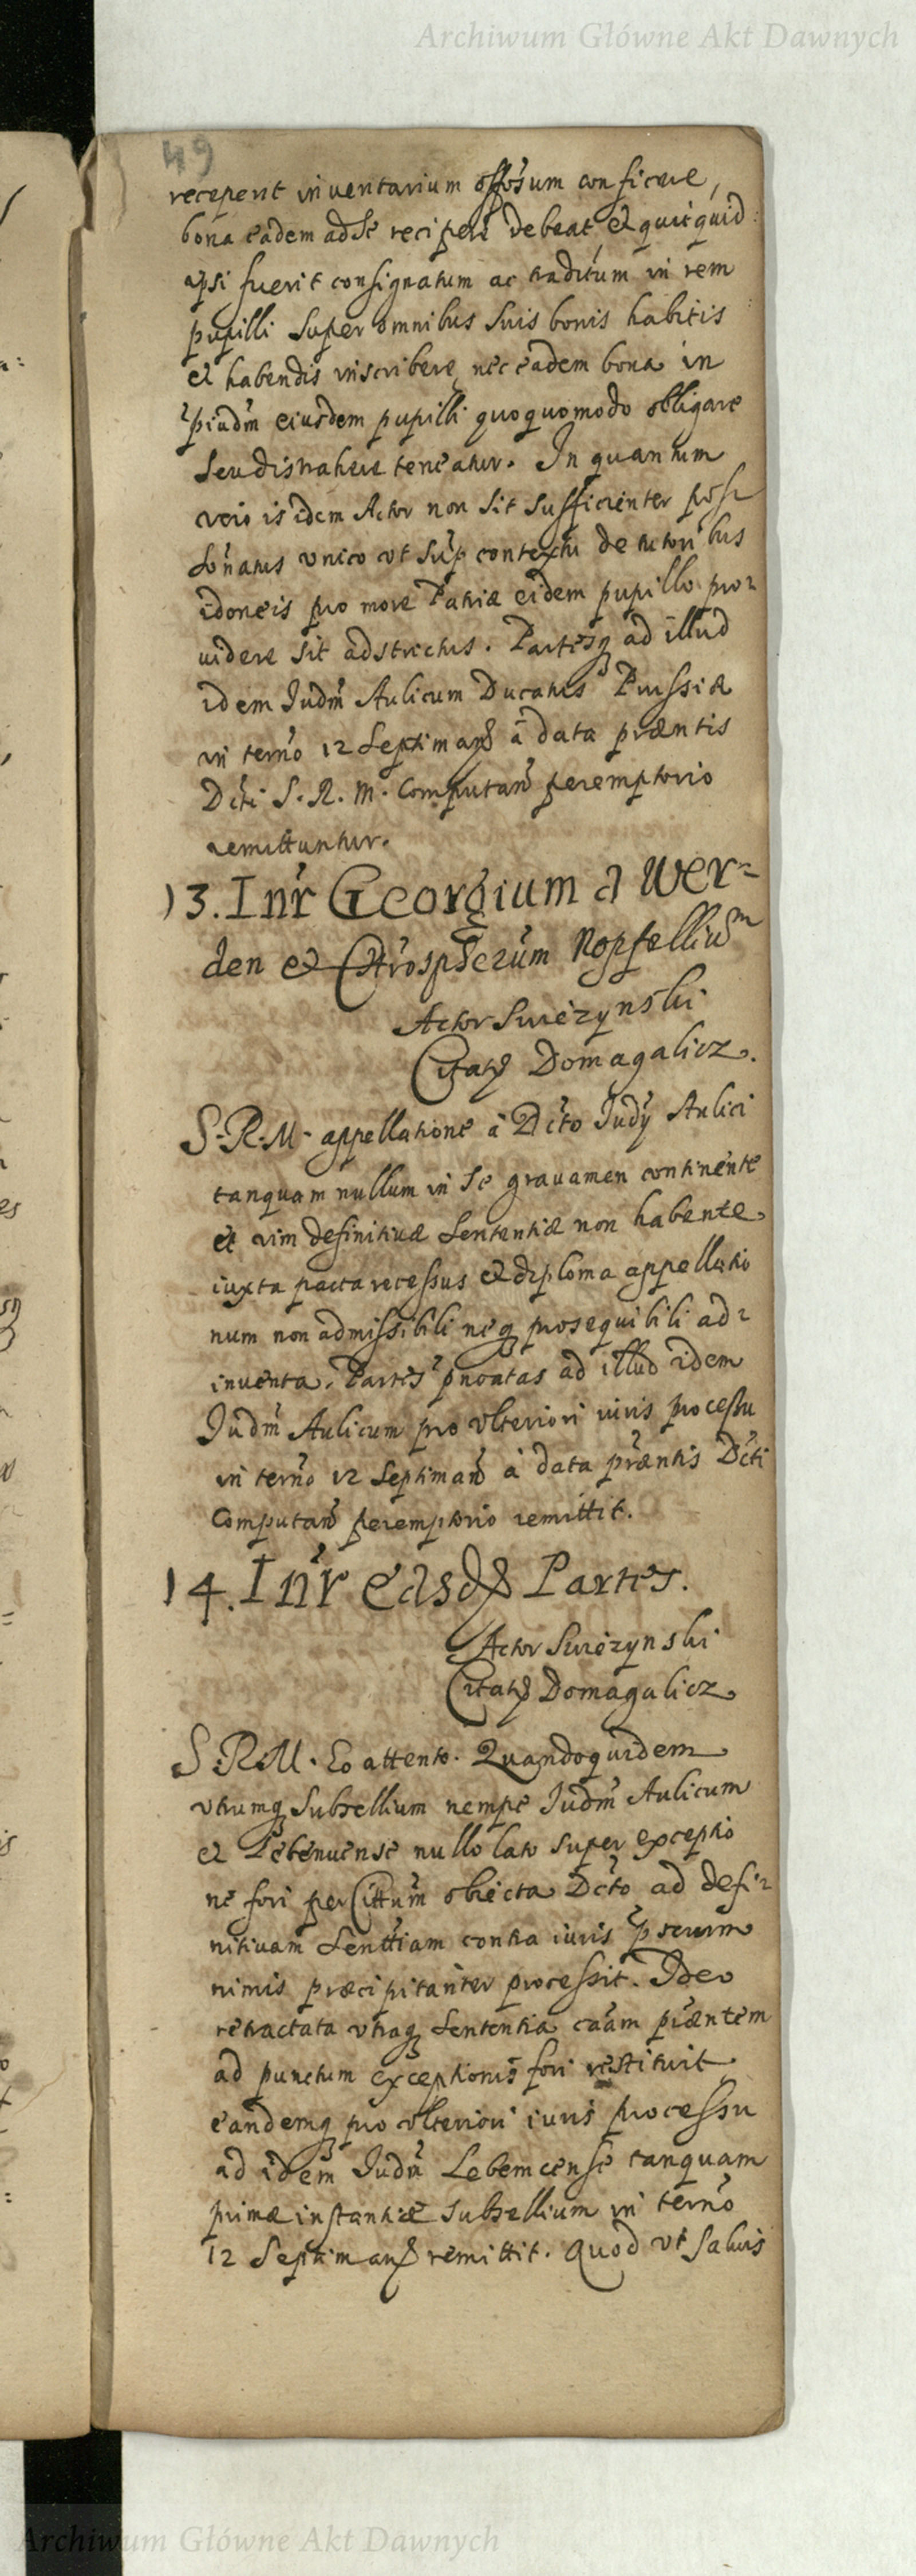 Archiwum Główne Akt Dawnych
49
receperit inventarium offõsum conficere,
bona eadem ad se recipere debeat, et quicquid
ipsi fuerit consignatum ac traditum in rem
pupilli super omnibus suis bonis habitis
et habendis inscribere, nec eadem bona in
piudm eiusdem pupilli quoquomodo obligare
seu distrahere teneatur. In quantum
vero is idem Actor non sit sufficienter
vnico vt sup contextu de tutoribus
idoneis pro more Patriæ eidem pupillo pro=
uidere sit adstrictus. Partesq ad illud
idem Judm Aulicum Ducatus Prussiæ
in termo 12 Septiman à data præntis
Dcti S. R. M. Computan peremptorio
remittuntur.
13. Intr Georgium à Wer=
den et
Actor Swiezynski
Citats Domagalicz.
S. R. M. appellatione à Dcto Judy Aulici
tanquam nullum in se gravamen continente
et vim definitivæ sententiæ non habente
iuxta pacta recessus et diploma appellatio
num non admissibili neq prosequibili ad=
inventa. Partes pnoatas ad illud idem
Judm Aulicum pro vlteriori iuris processu
in termo 12 Septiman à data præntis Dcti
Computan peremptorio remittit.
14. Intr easd Partes.
Actor Swiezynski
Citats Domagalicz
S. R. M. Eo attento. Quandoquidem
vtrumq Subsellium nempe Judm Aulicum
et nullo lato super exceptio
ne fori per Cittum obiecta Dcto ad defi=
nitivam Senttiam contra iuris pscrum
nimis præcipitanter processit. Ideo
retractata vtraq Sententia caam præntem
ad punctum exceptionis fori restituit
eandemq pro vlteriori iuris processu
ad idem Judm Lebemcense tanquam
primæ instantiæ subsellium in termo
12 Septiman remittit. Quod vt salvis
Archiwum Główne Akt Dawnych